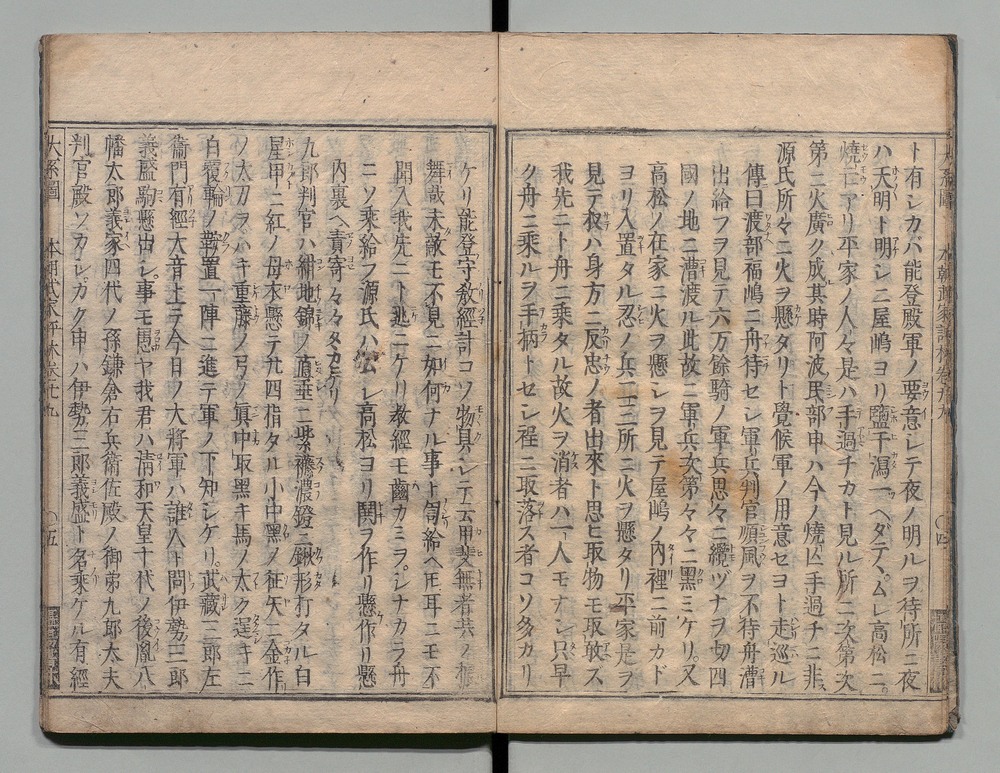 ト有シカバ能登殿軍ノ要意シテ夜ノ明ルヲ待所ニ夜
ハ天明ト明シニ屋嶋ヨリ鹽干潟一ヘダテ、ムレ高松ニ
焼亡アリ平家ノ人々是ハ手過チカト見ル所ニ次第次
第ニ火廣ク成其時阿波民部申ハ今ノ焼亡手過チニ非
源氏所々ニ火ヲ懸タリト覺候軍ノ用意セヨト走巡ル
傳曰渡部福嶋ニ舟待セシ軍兵判官順風ヲ不待舟漕
出給フヲ見テ六万餘騎ノ軍兵思々ニ纜ヅナヲ切四
國ノ地ニ漕渡ル此故ニ軍兵次第々々ニ黒ミケリ又
高松ノ在家ニ火ヲ懸シヲ見テ屋嶋ノ内裡ニ前カド
ヨリ入置タル忍ノ兵二三所ニ火ヲ懸タリ平家是ヲ
見テ扨ハ身方ニ反忠ノ者出來ト思ヒ取物モ取敢ス
我先ニト舟ニ乗タル故火ヲ消者ハ一人モナシ只早
ク舟ニ乗ルヲ手柄トセシ程ニ取落ス者コソ多カリ
ケリ能登守教經計コソ物具シテ云甲斐無者共ノ
舞哉未敵モ不見ニ如何ナル事ト給ヘモ耳ニモ不
聞入我先ニト逃ニケリ教經モ齒カミヲシナカラ舟
ニソ乗給フ源氏ハ レ高松ヨリ鬨ヲ作リ懸作リ懸
内裏ヘ責寄々々タカヒケリ
九郎判官ハ紺地錦ノ直垂ニ紫襽濃鐙ニ鍬形打タル白
星甲ニ紅ノ母衣懸テ廿四指タル小中黒ノ征矢ニ金作
ノ太刀ヲハキ重藤ノ弓ノ眞中取黒キ馬ノ太ク逞キニ
白覆輪ノ鞍置一陣ニ進テ軍ノ下知シケリ武藏三郎左
衞門有經大音上テ今日ノ大將軍ハ誰人ト問伊勢三郎
義盛駒懸出シ事モ愚ヤ我君ハ清和天皇十代ノ後胤八
幡太郎義家四代ノ孫鎌倉右兵衛佐殿ノ御弟九郎太夫
判官殿ソカシカク申ハ伊勢三郎義盛ト名乗ケル有經
大系圖 本朝武家評林卷廿九 〇五